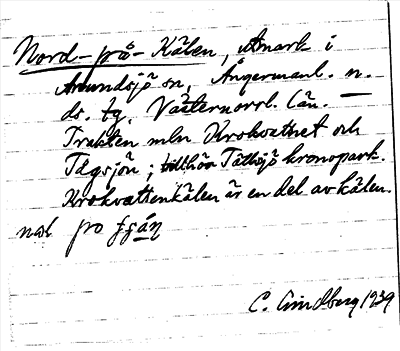 Nord-på-Kälen, Amark i
Amundsjö sn, Ångermanl. n.
ds. tg, Västernorrl. län. —
Trakten mln Krokvattnet och
Tågsjön; tillhör Tåsjö kronopark.
Krokvattenkälen är en del av kälen.
C. Lindberg 1939